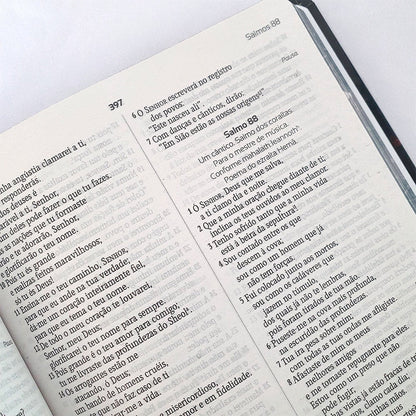 397
Salmos 88
nha angústia clamarei a ti,
responderás.
deuses é
a ti, Senhor,
deles pode fazer o que tu fazes.
as nações que tu formaste
e te adorarão, Senhor,
glorificarão o teu nome.
Pois tu és grande
e realizas feitos maravilhosos;
és Deus!
11 Ensina-me o teu caminho, SENHOR,
para que eu ande na tua verdade;
dá-me um coração inteiramente fiel,
para que eu tema o teu nome.
12 De todo o meu coração te louvarei,
Senhor, meu Deus;
glorificarei o teu nome para sempre.
13 Pois grande é o teu amor para comigo;
tu me tiraste das profundezas do Sheol.
14 Os arrogantes estão me
atacando, ó Deus;
um bando de homens cruéis,
gente que não faz caso de ti
misericordioso,
amor e em fidelidade.
6 O SENHOR escreverá no registro
dos povos:
"Este nasceu ali".
Pausa
7 Com danças e cânticos, dirão:
"Em Sião estão as nossas origens!"
Salmo 88
Um cântico. Salmo dos coraítas.
Para o mestre de música.
Conforme mahalath leannoth.
Poema do ezraíta Hemã.
1 Ó SENHOR, Deus que me salva,
a ti clamo dia e noite.
2 Que a minha oração chegue diante de ti;
inclina os teus ouvidos ao meu clamor.
3 Tenho sofrido tanto que a minha vida
está à beira da sepultura!
4 Sou contado entre os que
descem à cova;
sou como um homem que já
não tem forças.
5 Fui colocado junto aos mortos,
sou como os cadáveres que
jazem no túmulo,
dos quais já não te lembras,
pois foram tirados de tua mão.
6 Puseste-me na cova mais profunda,
na escuridão das profundezas.
7 Tua ira pesa sobre mim;
com todas as tuas ondas me afligiste.
8 Afastaste de mim os meus
melhores amigos
e me tornaste repugnante para eles.
Estou como um preso que não